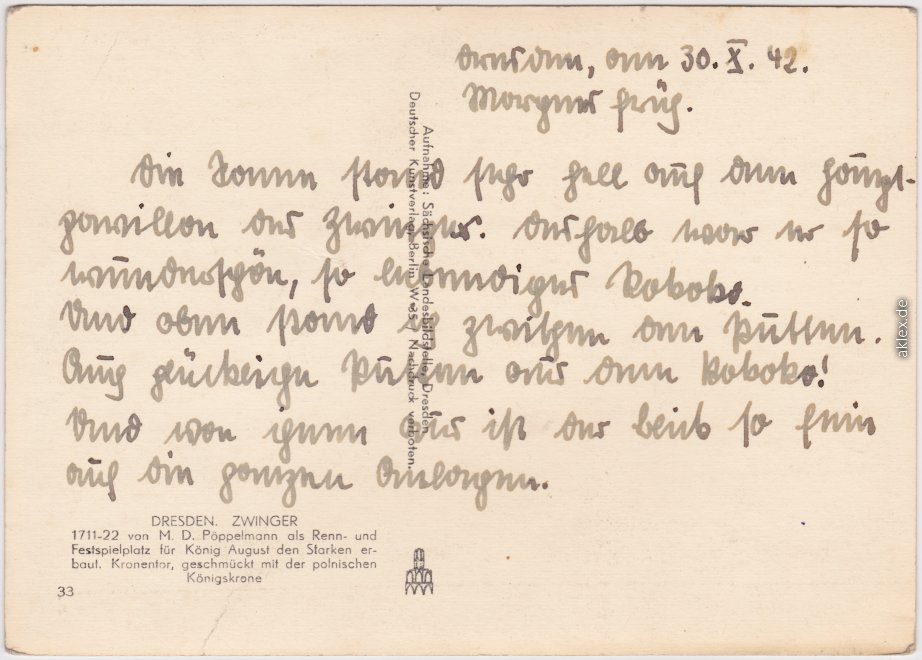 Dresden, am 30. X. 42.
Morgens früh.
Die Sonne stand sehr hell auf dem Haupt-
pavillon des Zwingers. Deshalb war er so
wunderschön, so lebendiges Rokoko.
Und oben stand ich zwischen den Putten.
Auch glückliche Putten aus dem Rokoko!
Und von ihnen aus ist der Blick so fein
auf die ganzen Anlagen.
Aufnahme: Sächsische Landesbildstelle, Dresden
Deutscher Kunstverlag, Berlin W 35 / Nachdruck verboten.
DRESDEN. ZWINGER
1711-22 von M. D. Pöppelmann als Renn- und
Festspielplatz für König August den Starken er-
baut. Kronentor, geschmückt mit der polnischen
Königskrone
33
aklex.de